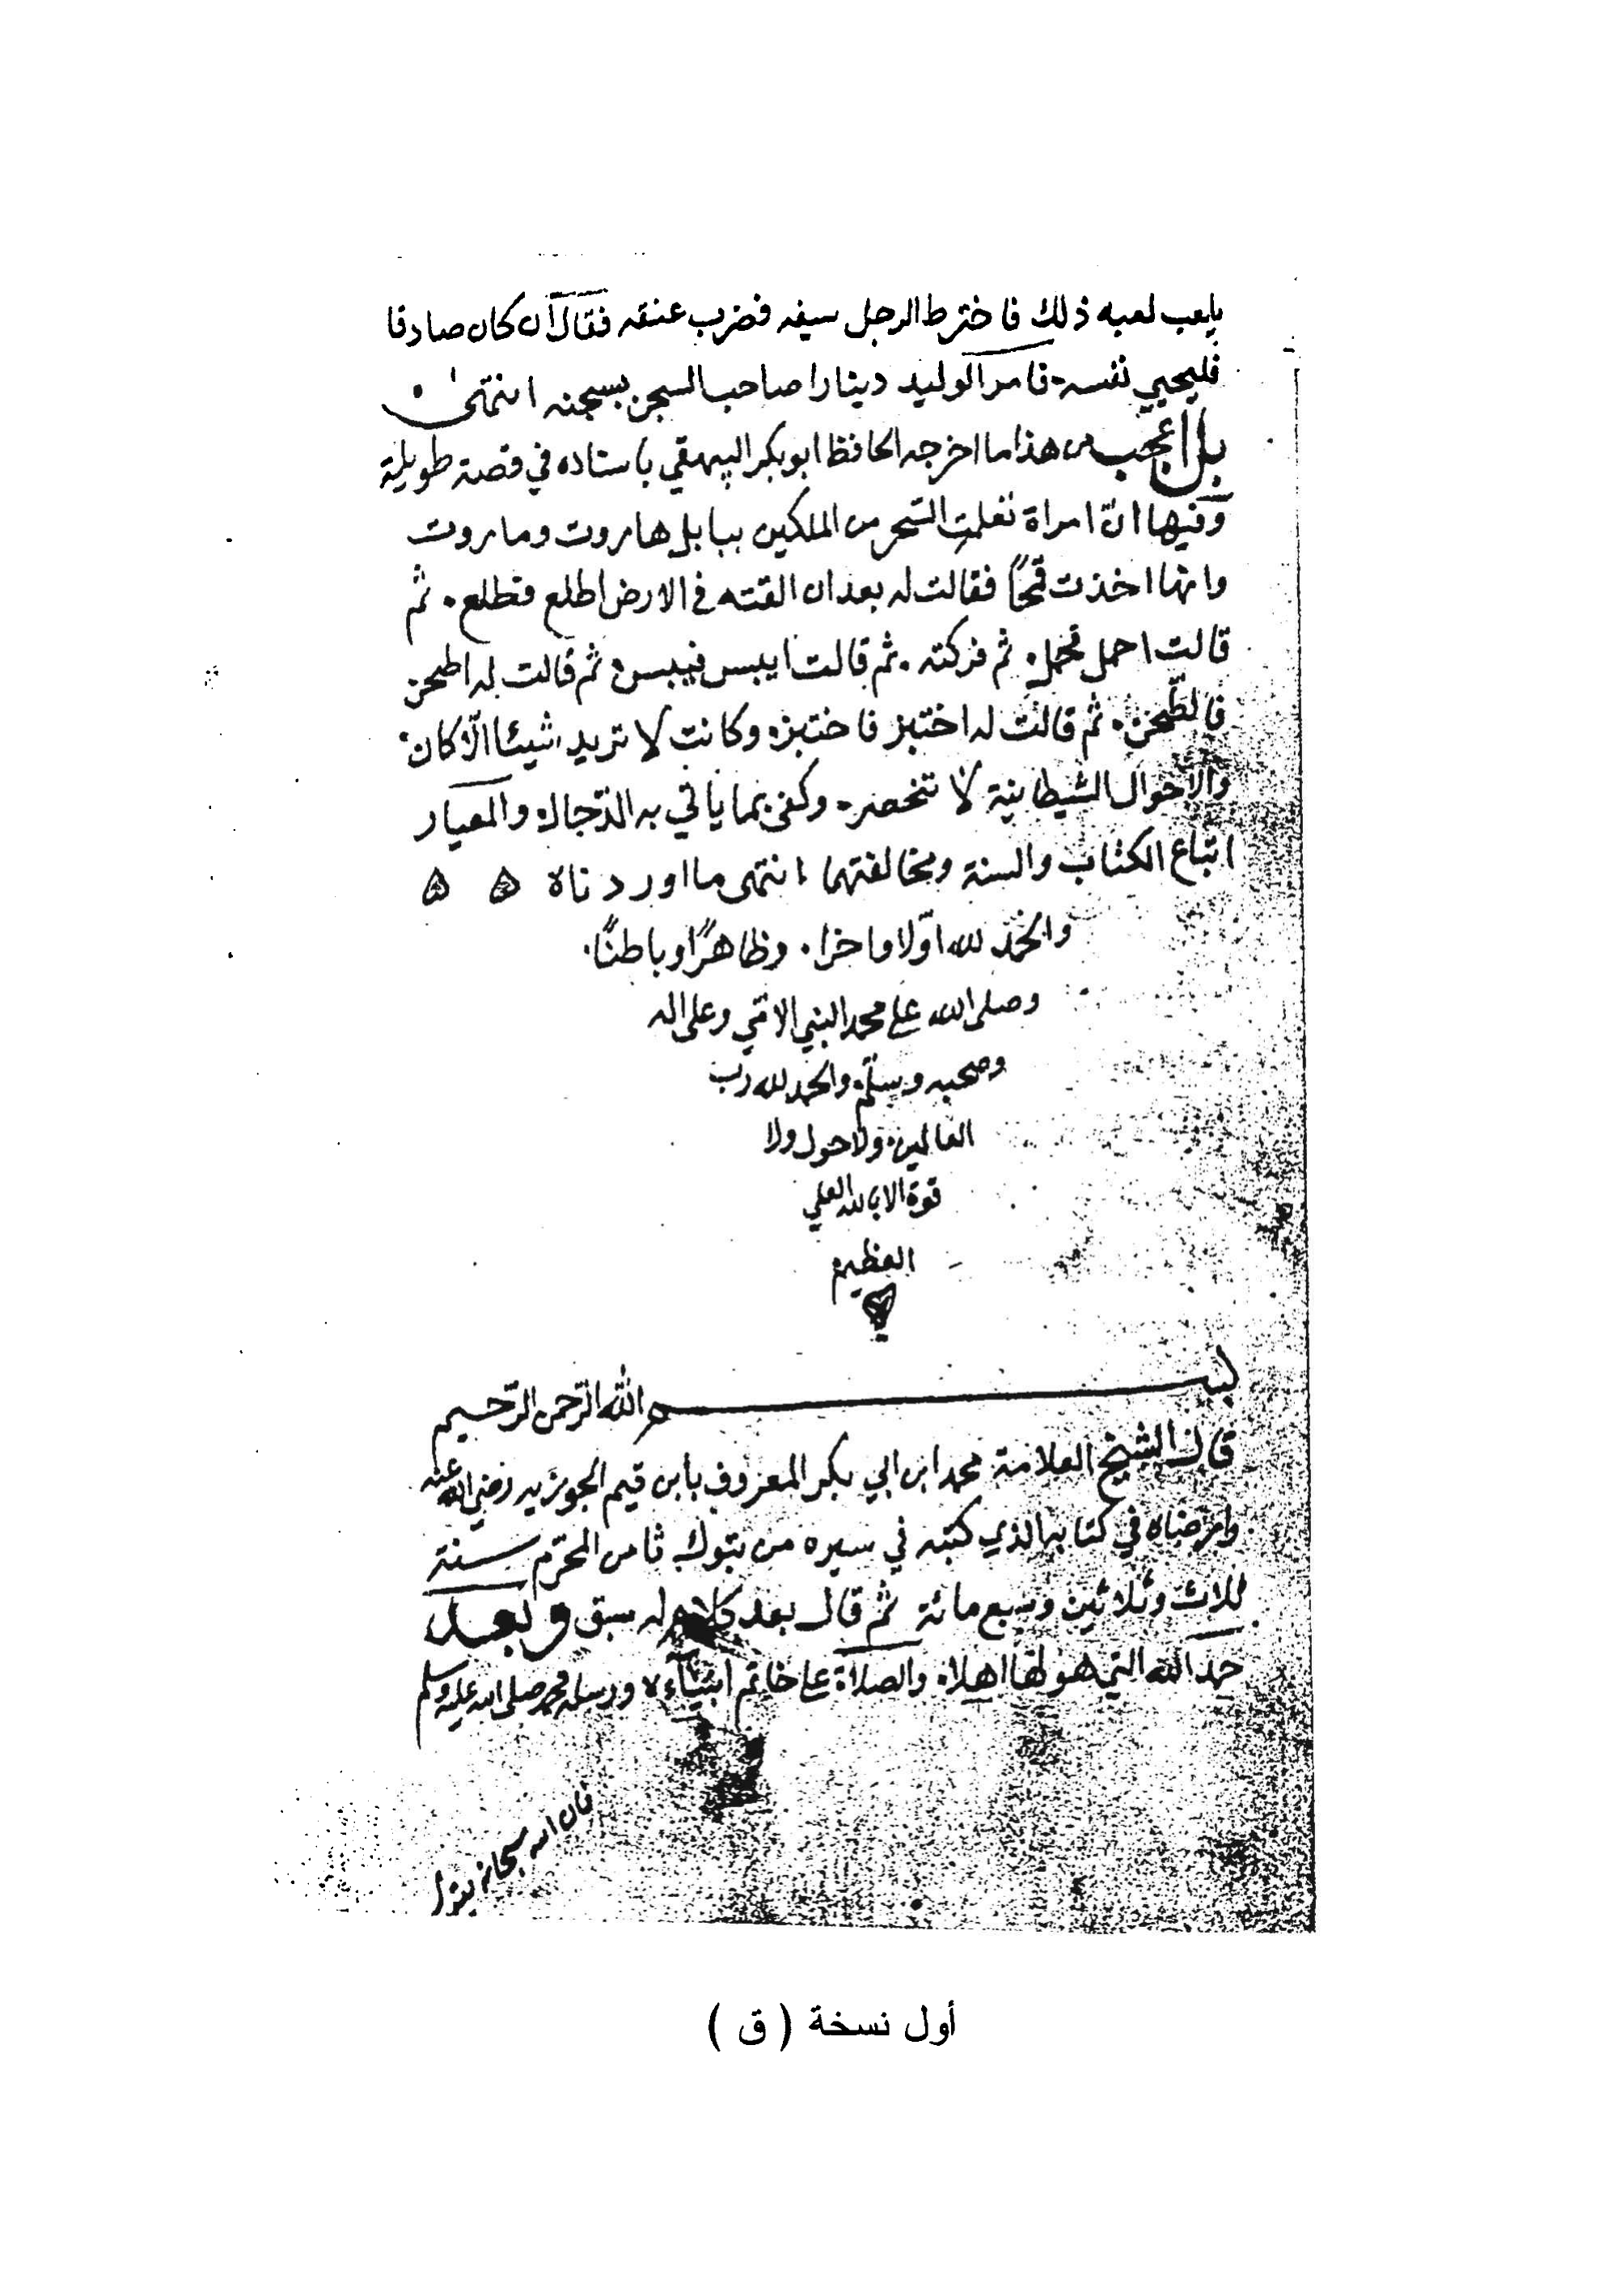 يلعب لعبه ذلك فاخترط الرجل سيفه فضرب عنقه فقال ان كان صادقا
فليحيي نفسه. فامر الوليد دينارا صاحب السجن بسجنه انتهى.
بل اعجب من هذا ما اخرجه الحافظ ابو بكر البيهقي باسناده في قصة طويلة
وفيها انّ امراة تعلمت السّحر من الملكين ببابل هاروت وماروت
وانها اخذت قمحًا فقالت له بعد ان القته في الارض اطلع فطلع. ثم
قالت احمل فحمل. ثم فركته. ثم قالت ايبس فيبس ثم قالت له اطحن
فاطّحن. ثم قالت له اختبز فاختبزه وكانت لا تريد شيئا الّا كان.
والاحوال الشيطانية لا تنحصر. وكفى بما ياتي به الدّجال والمعيار
اتباع الكتاب والسنة ومخالفتهما انتهى ما اوردناه ه ه
والحمد لله اوّلا واخرا. وظاهرًا وباطنًا.
وصلى الله على محمد النبي الامّي وعلى اله
وصحبه وسلّم. والحمد لله رب
العالمين. ولا حول ولا
قوة الا بالله العلي
العظيم
بسم الله الرّحمن الرّحيم
قال الشيخ العلامة محمد ابن ابي بكر المعروف بابن قيم الجوزيه رضي الله عنه
وارضاه في كتابه الذي كتبه في سيره من تبوك ثامن المحرّم سنة
ثلاث وثلاثين وسبع مائة ثم قال بعد كلام له سبق وبعد
حمد الله التي هو لها اهلا والصلاة على خاتم انبياءه ورسله محمد صلى الله عليه وسلم
فان الله سبحانه يقول
أول نسخة ( ق )